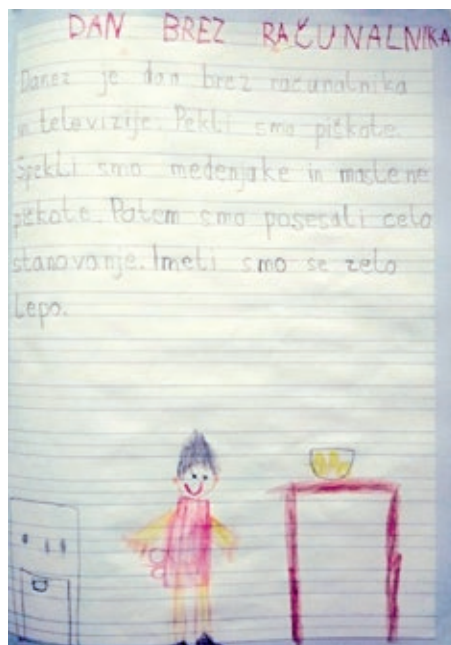 DAN BREZ RAČUNALNIKA
Danes je dan brez računalnika
in televizije. Pekli smo piškote.
Spekli smo medenjake in maslene
piškote. Potem smo posesali celo
stanovanje. Imeli smo se zelo
lepo.